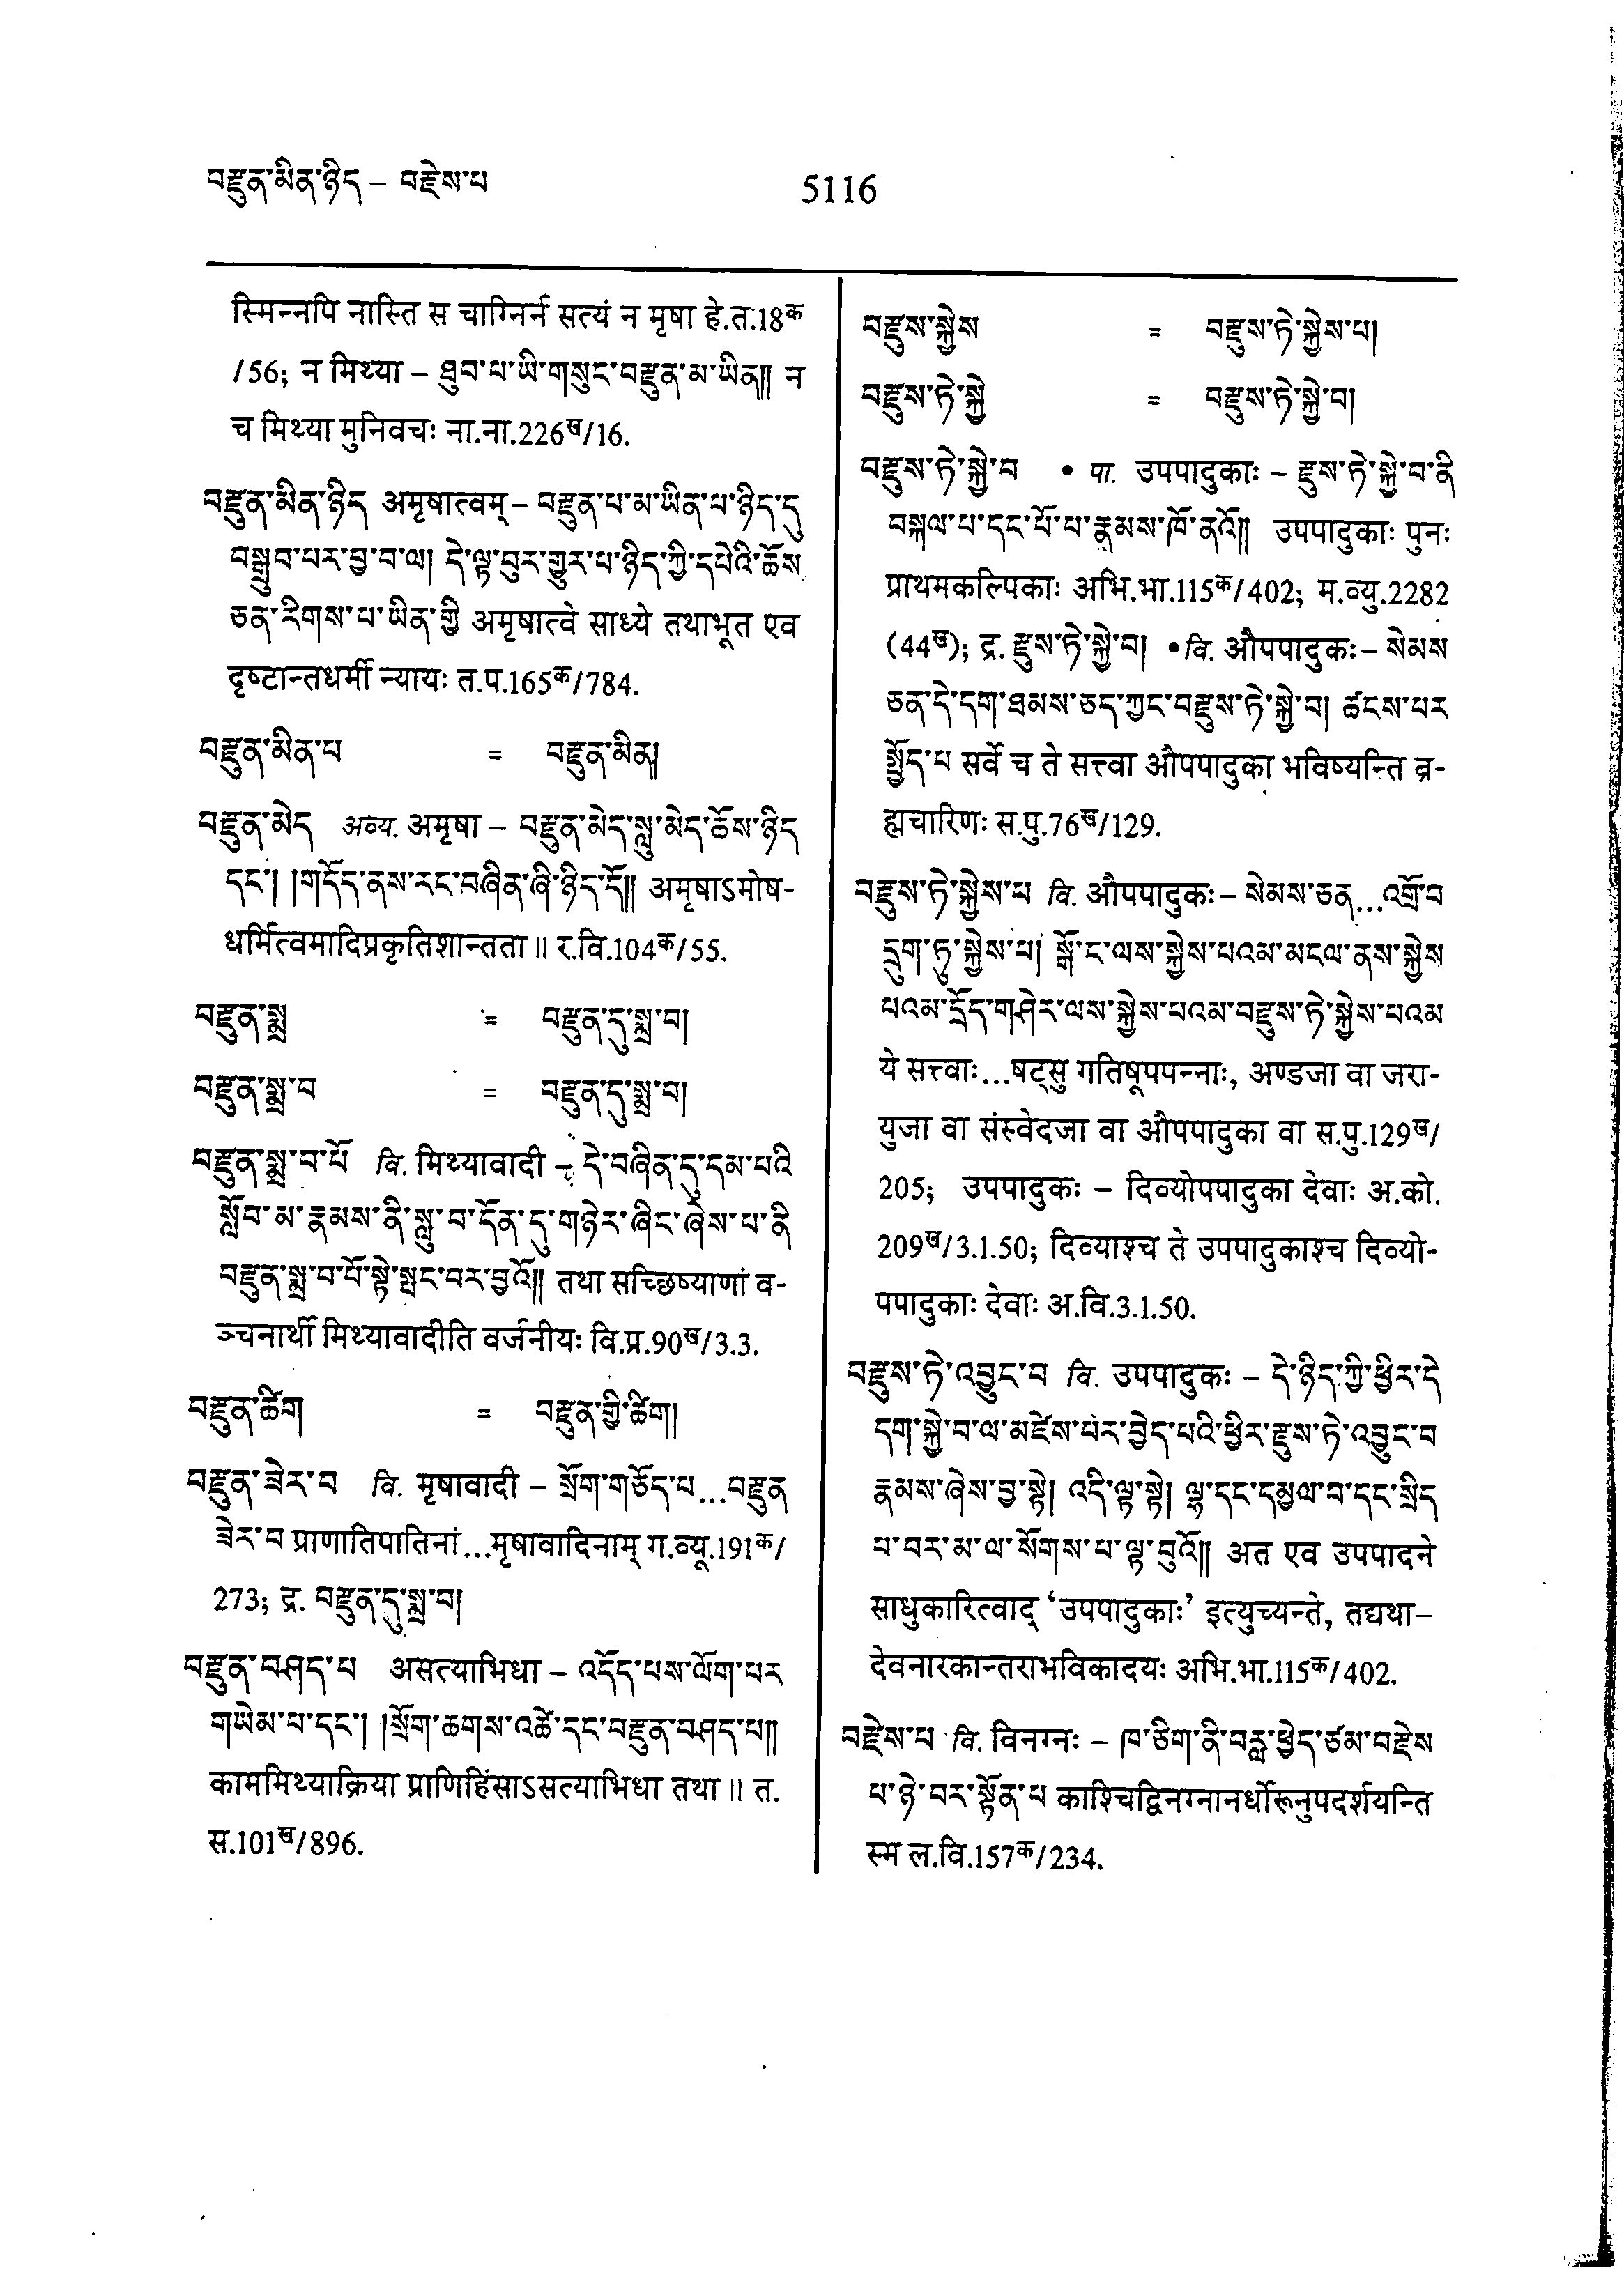 བརྫུན་མིན་ཉིད – བརྫེས་པ
5116
स्मिन्नपि नास्ति स चाग्निर्न सत्यं न मृषा हे.त.18क
/56; न मिथ्या – ཐུབ་པ་ཡི་གསུང་བརྫུན་མ་ཡིན༎ न
च मिथ्या मुनिवचः ना.ना.226ख/16.
བརྫུན་མིན་ཉིད अमृषात्वम् – བརྫུན་པ་མ་ཡིན་པ་ཉིད་དུ
བསྒྲུབ་པར་བྱ་བ་ལ། དེ་ལྟ་བུར་གྱུར་པ་ཉིད་ཀྱི་དཔེའི་ཆོས
ཅན་རིགས་པ་ཡིན་གྱི अमृषात्वे साध्ये तथाभूत एव
दृष्टान्तधर्मी न्यायः त.प.165क/784.
བརྫུན་མིན་པ = བརྫུན་མིན།
བརྫུན་མེད अव्य. अमृषा – བརྫུན་མེད་སླུ་མེད་ཆོས་ཉིད
དང་། །གདོད་ནས་རང་བཞིན་ཞི་ཉིད་དོ༎ अमृषाऽमोष-
धर्मित्वमादिप्रकृतिशान्तता ॥ र.वि.104क/55.
བརྫུན་སྨྲ = བརྫུན་དུ་སྨྲ་བ།
བརྫུན་སྨྲ་བ = བརྫུན་དུ་སྨྲ་བ།
བརྫུན་སྨྲ་བ་པོ वि. मिथ्यावादी – དེ་བཞིན་དུ་དམ་པའི
སློབ་མ་རྣམས་ནི་སླུ་བ་དོན་དུ་གཉེར་ཞིང་ཞེས་པ་ནི
བརྫུན་སྨྲ་བ་པོ་སྟེ་སྤང་བར་བྱའོ༎ तथा सच्छिष्याणां व-
ञ्चनार्थी मिथ्यावादीति वर्जनीयः वि.प्र.90ख/3.3.
བརྫུན་ཚིག = བརྫུན་གྱི་ཚིག།
བརྫུན་ཟེར་བ वि. मृषावादी – སྲོག་གཅོད་པ...བརྫུན
ཟེར་བ प्राणातिपातिनां...मृषावादिनाम् ग.व्यू.191क/
273; द्र. བརྫུན་དུ་སྨྲ་བ།
བརྫུན་བཤད་པ असत्याभिधा – འདོད་པས་ལོག་པར
གཡེམ་པ་དང་། །སྲོག་ཆགས་འཚེ་དང་བརྫུན་བཤད་པ༎
काममिथ्याक्रिया प्राणिहिंसाऽसत्याभिधा तथा ॥ त.
स.101ख/896.
བརྫུས་སྐྱེས = བརྫུས་ཏེ་སྐྱེས་པ།
བརྫུས་ཏེ་སྐྱེ = བརྫུས་ཏེ་སྐྱེ་བ།
བརྫུས་ཏེ་སྐྱེ་བ • पा. उपपादुकाः – རྫུས་ཏེ་སྐྱེ་བ་ནི
བསྐལ་པ་དང་པོ་པ་རྣམས་ཁོ་ནའོ༎ उपपादुकाः पुनः
प्राथमकल्पिकाः अभि.भा.115क/402; म.व्यु.2282
(44ख); द्र. རྫུས་ཏེ་སྐྱེ་བ། • वि. औपपादुकः – སེམས
ཅན་དེ་དག་ཐམས་ཅད་ཀྱང་བརྫུས་ཏེ་སྐྱེ་བ། ཚངས་པར
སྤྱོད་པ सर्वे च ते सत्त्वा औपपादुका भविष्यन्ति ब्र-
ह्मचारिणः स.पु.76ख/129.
བརྫུས་ཏེ་སྐྱེས་པ वि. औपपादुकः – སེམས་ཅན...འགྲོ་བ
དྲུག་ཏུ་སྐྱེས་པ། སྒོ་ང་ལས་སྐྱེས་པའམ་མངལ་ནས་སྐྱེས
པའམ་དྲོད་གཤེར་ལས་སྐྱེས་པའམ་བརྫུས་ཏེ་སྐྱེས་པའམ
ये सत्त्वाः...षट्सु गतिषूपपन्नाः, अण्डजा वा जरा-
युजा वा संस्वेदजा वा औपपादुका वा स.पु.129ख/
205; उपपादुकः – दिव्योपपादुका देवाः अ.को.
209ख/3.1.50; दिव्याश्च ते उपपादुकाश्च दिव्यो-
पपादुकाः देवाः अ.वि.3.1.50.
བརྫུས་ཏེ་འབྱུང་བ वि. उपपादुकः – དེ་ཉིད་ཀྱི་ཕྱིར་དེ
དག་སྐྱེ་བ་ལ་མཛེས་པར་བྱེད་པའི་ཕྱིར་རྫུས་ཏེ་འབྱུང་བ
རྣམས་ཞེས་བྱ་སྟེ། འདི་ལྟ་སྟེ། ལྷ་དང་དམྱལ་བ་དང་སྲིད
པ་བར་མ་ལ་སོགས་པ་ལྟ་བུའོ༎ अत एव उपपादने
साधुकारित्वाद् ‘उपपादुकाः’ इत्युच्यन्ते, तद्यथा–
देवनारकान्तराभविकादयः अभि.भा.115क/402.
བརྫེས་པ वि. विनग्नः – ཁ་ཅིག་ནི་བརླ་ཕྱེད་ཙམ་བརྫེས
པ་ཉེ་བར་སྟོན་པ काश्चिद्विनग्नानर्धोरूनुपदर्शयन्ति
स्म ल.वि.157क/234.